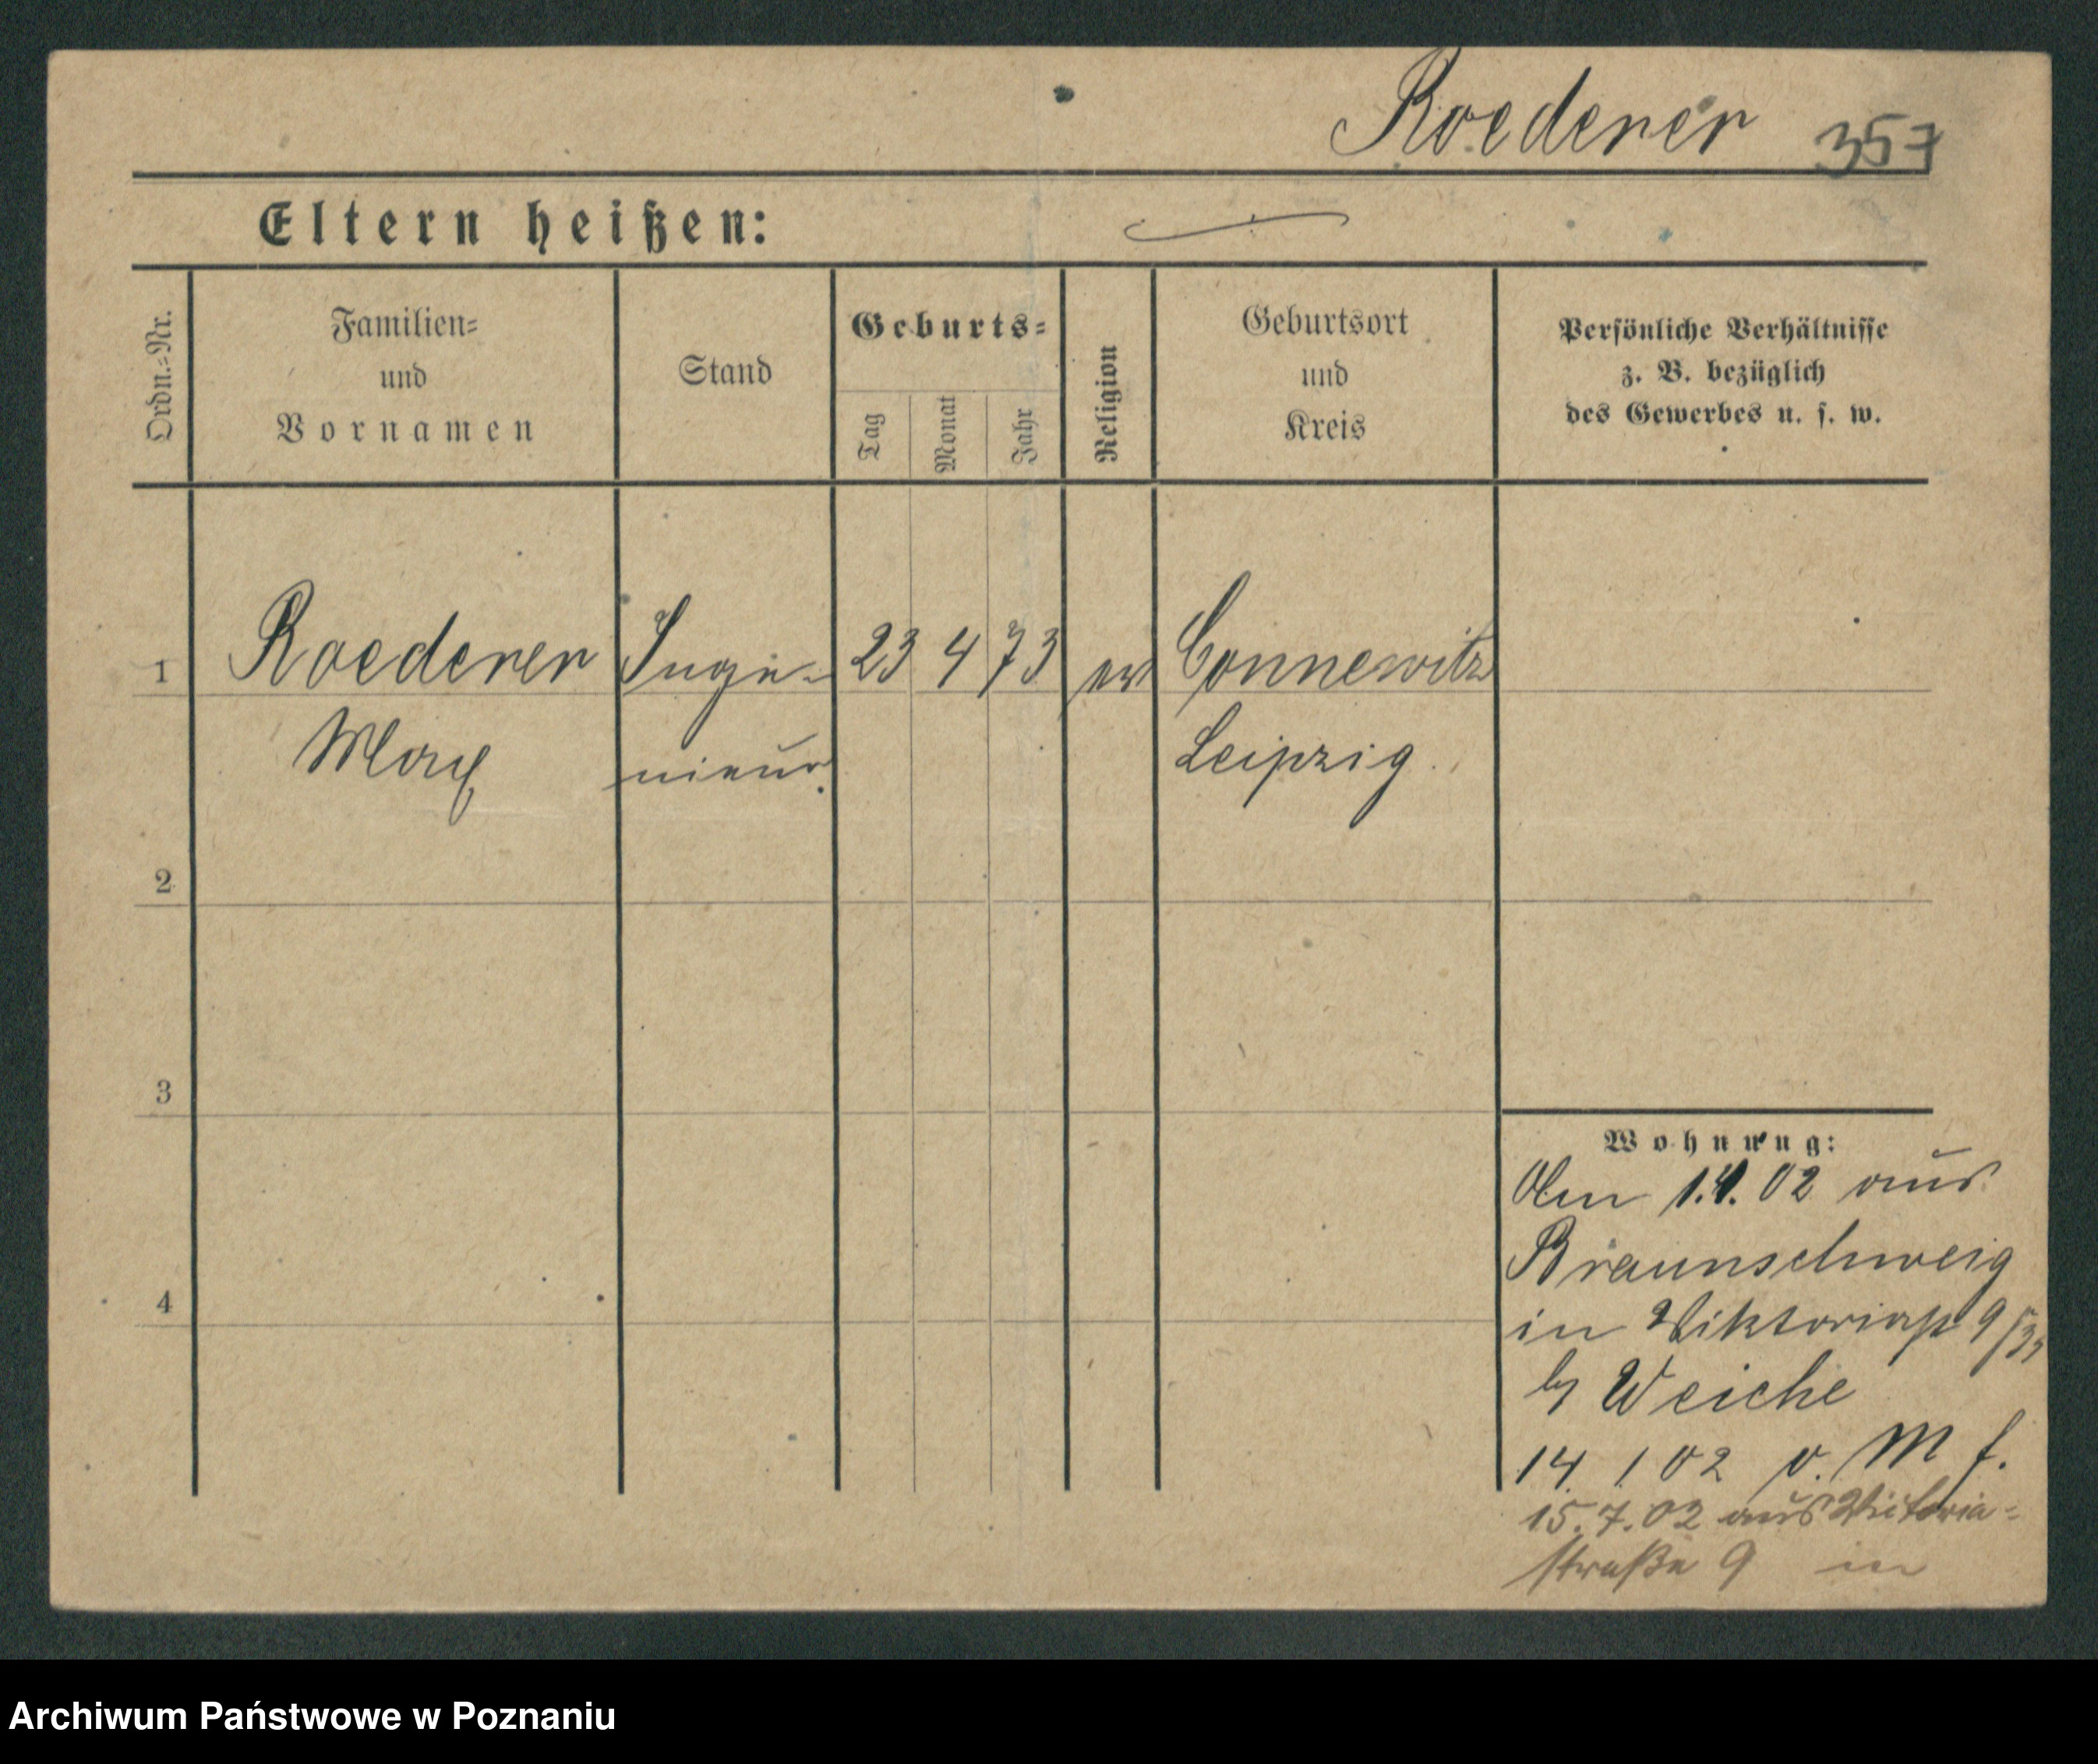 Roederer 357
Eltern heißen:
Ordn.-Nr.
Familien-
und
Vornamen
Stand
Geburts-
Tag
Monat
Jahr
Religion
Geburtsort
und
Kreis
Persönliche Verhältnisse
z. B. bezüglich
des Gewerbes u. s. w.
1 Roederer Inge- 23 4 73 ev Connewitz
Max nieur. Leipzig.
2
3
4
Wohnung:
Am 1.4.02 aus
Braunschweig
in Viktoriastr 9
by Weiche
14 1 02 v. M f.
15.7.02 aus Victoria-
straße 9 in
Archiwum Państwowe w Poznaniu